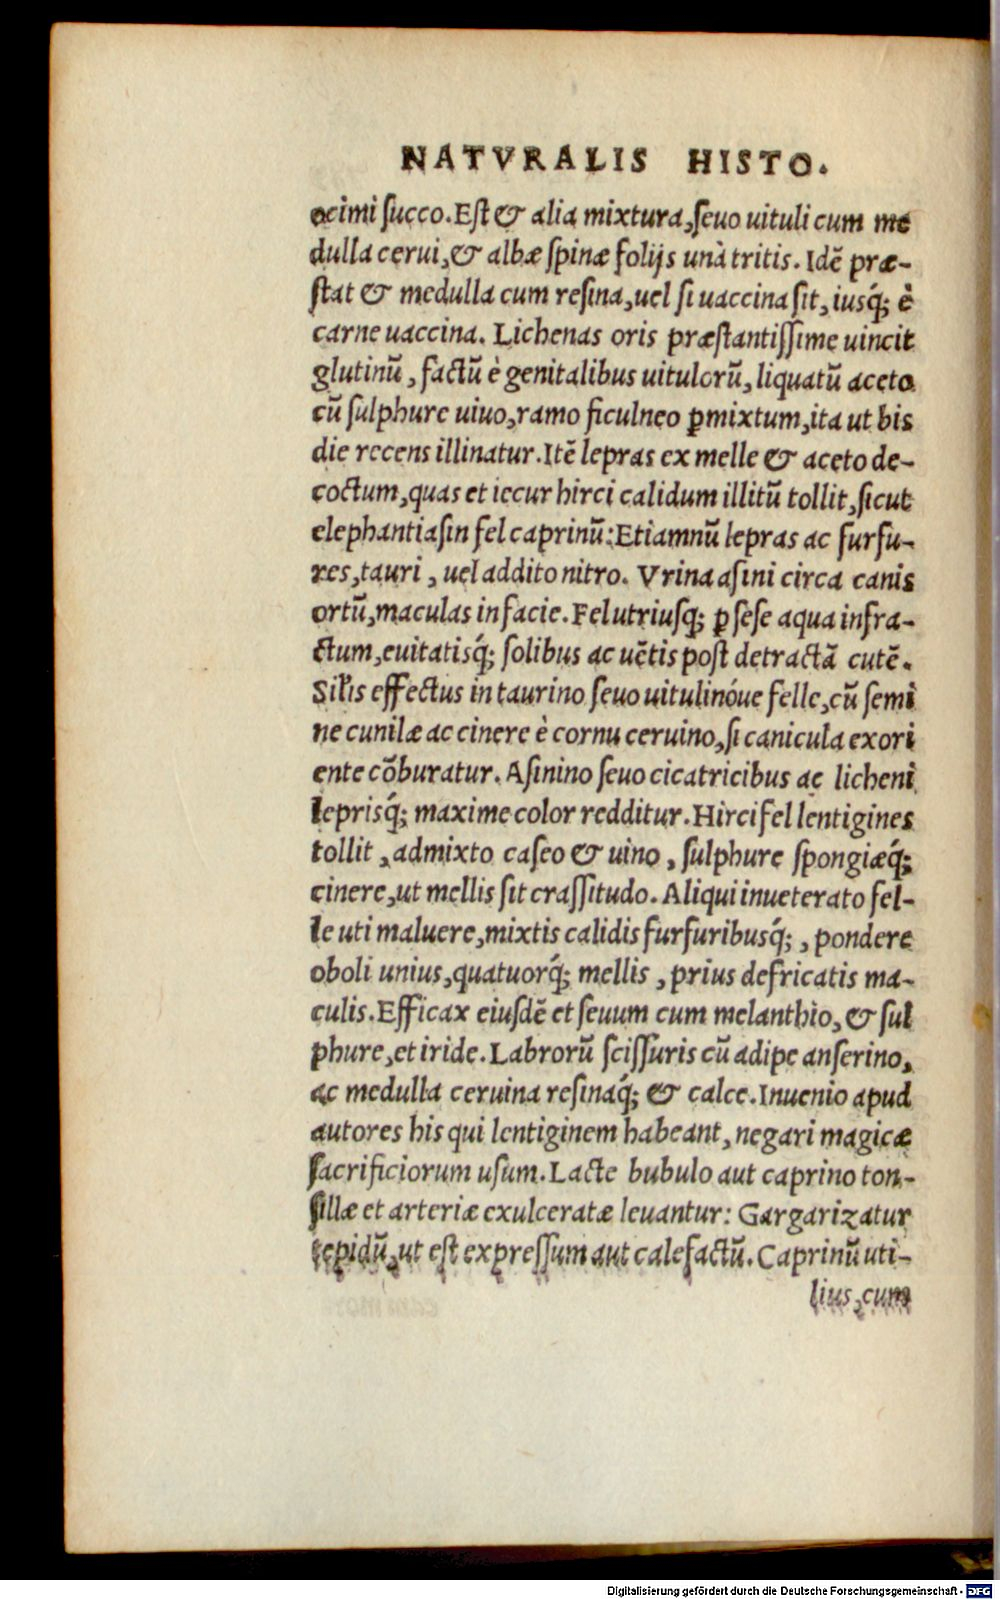 NATVRALIS HISTO.
ocimi succo. Est & alia mixtura, seuo uituli cum me
dulla cerui, & albæ spinæ folijs unà tritis. Idẽ præ-
stat & medulla cum resina, uel si uaccina sit, iusq́; è
carne uaccina. Lichenas oris præstantissime uincit
glutinũ, factũ è genitalibus uitulorũ, liquatũ aceto
cũ sulphure uiuo, ramo ficulneo ꝑmixtum, ita ut bis
die recens illinatur. Itẽ lepras ex melle & aceto de-
coctum, quas et iecur hirci calidum illitũ tollit, sicut
elephantiasin fel caprinũ: Etiamnũ lepras ac furfu-
res, tauri, uel addito nitro. Vrina asini circa canis
ortũ, maculas in facie. Fel utriusq́; ꝑ sese aqua infra-
ctum, euitatisq́; solibus ac uẽtis post detractã cutẽ.
Sil̃is effectus in taurino seuo uitulinóue felle, cũ semi
ne cunilæ ac cinere è cornu ceruino, si canicula exori
ente cõburatur. Asinino seuo cicatricibus ac licheni
leprisq́; maxime color redditur. Hirci fel lentigines
tollit, admixto caseo & uino, sulphure spongiæq́;
cinere, ut mellis sit crassitudo. Aliqui inueterato fel-
le uti maluere, mixtis calidis furfuribusq́;, pondere
oboli unius, quatuorq́; mellis, prius defricatis ma-
culis. Efficax eiusdẽ et seuum cum melanthio, & sul
phure, et iride. Labrorũ scissuris cũ adipe anserino,
ac medulla ceruina resinaq́; & calce. Inuenio apud
autores his qui lentiginem habeant, negari magicæ
sacrificiorum usum. Lacte bubulo aut caprino ton-
sillæ et arteriæ exulceratæ leuantur: Gargarizatur
tepidũ, ut est expressum aut calefactũ. Caprinũ uti-
lius, cum
Digitalisierung gefördert durch die Deutsche Forschungsgemeinschaft - DFG